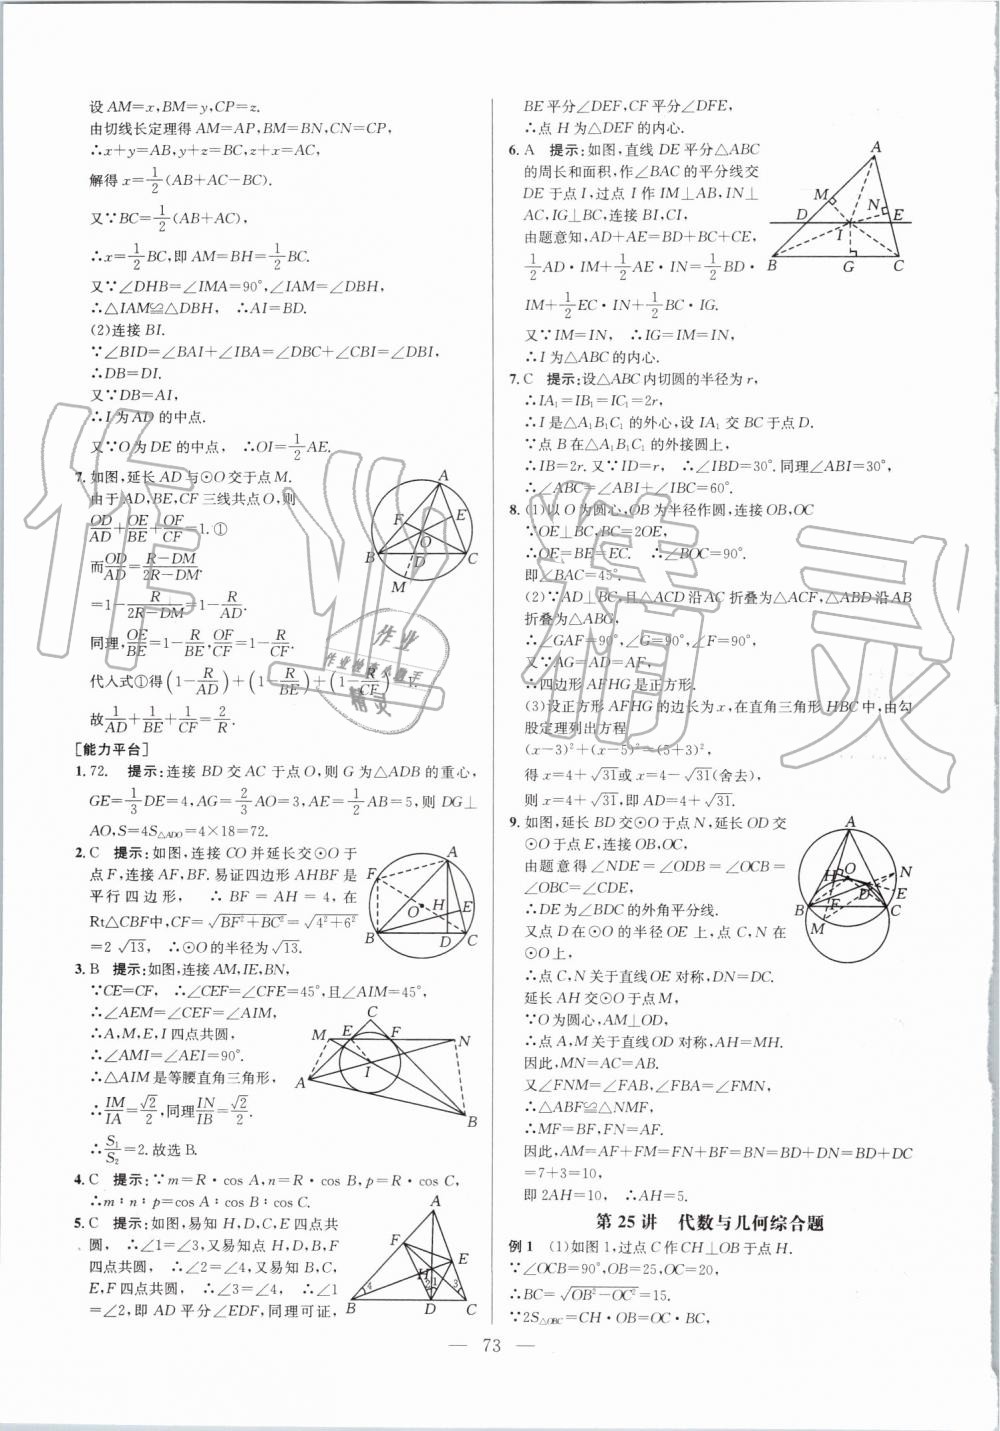 设 AM=x,BM=y,CP=z.
由切线长定理得 AM=AP,BM=BN,CN=CP,
∴x+y=AB,y+z=BC,z+x=AC,
解得 x=1/2(AB+AC-BC).
又∵BC=1/2(AB+AC),
∴x=1/2BC,即 AM=BH=1/2BC.
又∵∠DHB=∠IMA=90°,∠IAM=∠DBH,
∴△IAM≌△DBH, ∴AI=BD.
(2)连接 BI.
∵∠BID=∠BAI+∠IBA=∠DBC+∠CBI=∠DBI,
∴DB=DI.
又∵DB=AI,
∴I 为 AD 的中点.
又∵O 为 DE 的中点, ∴OI=1/2AE.
7. 如图,延长 AD 与⊙O 交于点 M.
由于 AD,BE,CF 三线共点 O,则
OD/AD+OE/BE+OF/CF=1.①
而OD/AD=(R-DM)/(2R-DM)
=1-R/(2R-DM)=1-R/AD.
同理,OE/BE=1-R/BE,OF/CF=1-R/CF.
代入式①得(1-R/AD)+(1-R/BE)+(1-R/CF)=1.
故1/AD+1/BE+1/CF=2/R.
[能力平台]
1. 72. 提示:连接 BD 交 AC 于点 O,则 G 为△ADB 的重心,
GE=1/3DE=4,AG=2/3AO=3,AE=1/2AB=5,则 DG⊥
AO,S=4S△ADO=4×18=72.
2. C 提示:如图,连接 CO 并延长交⊙O 于
点 F,连接 AF,BF. 易证四边形 AHBF 是
平行四边形, ∴BF=AH=4,在
Rt△CBF中,CF=√(BF²+BC²)=√(4²+6²)
=2√13, ∴⊙O 的半径为√13.
3. B 提示:如图,连接 AM,IE,BN,
∵CE=CF, ∴∠CEF=∠CFE=45°,且∠AIM=45°,
∴∠AEM=∠CEF=∠AIM.
∴A,M,E,I 四点共圆,
∴∠AMI=∠AEI=90°.
∴△AIM 是等腰直角三角形,
∴IM/IA=√2/2,同理IN/IB=√2/2.
∴S₁/S₂=2. 故选 B.
4. C 提示:∵m=R·cos A,n=R·cos B,p=R·cos C,
∴m∶n∶p=cos A∶cos B∶cos C.
5. C 提示:如图,易知 H,D,C,E 四点共
圆, ∴∠1=∠3,又易知 H,D,B,F
四点共圆, ∴∠2=∠4,又易知 B,C,
E,F 四点共圆, ∴∠3=∠4, ∴∠1
=∠2,即 AD 平分∠EDF,同理可证,
BE 平分∠DEF,CF 平分∠DFE,
∴点 H 为△DEF 的内心.
6. A 提示:如图,直线 DE 平分△ABC
的周长和面积,作∠BAC 的平分线交
DE 于点 I,过点 I 作 IM⊥AB,IN⊥
AC,IG⊥BC,连接 BI,CI,
由题意知,AD+AE=BD+BC+CE,
1/2AD·IM+1/2AE·IN=1/2BD·
IM+1/2EC·IN+1/2BC·IG.
又∵IM=IN, ∴IG=IM.
∴I 为△ABC 的内心.
7. C 提示:设△ABC 内切圆的半径为 r,
∴IA₁=IB₁=IC₁=2r,
∴I 是△A₁B₁C₁ 的外心,设 IA₁ 交 BC 于点 D.
∵点 B 在△A₁B₁C₁ 的外接圆上,
∴IB=2r. 又∵ID=r, ∴∠IBD=30°. 同理∠ABI=30°,
∴∠ABC=∠ABI+∠IBC=60°.
8. (1)以 O 为圆心,OB 为半径作圆,连接 OB,OC
∵OE⊥BC,BC=2OE,
∴OE=BE=EC. ∴∠BOC=90°.
即∠BAC=45°.
(2)∵AD⊥BC,且△ACD 沿 AC 折叠为△ACF,△ABD 沿 AB
折叠为△ABG,
∴∠GAF=90°,∠G=90°,∠F=90°.
又∵AG=AD=AF,
∴四边形 AFHG 是正方形.
(3)设正方形 AFHG 的边长为 x,在直角三角形 HBC 中,由勾
股定理列出方程
(x-3)²+(x-5)²=(5+3)²,
得 x=4+√31或 x=4-√31(舍去),
则 x=4+√31,即 AD=4+√31.
9. 如图,延长 BD 交⊙O 于点 N,延长 OD 交
⊙O 于点 E,连接 OB,OC,
由题意得∠NDE=∠ODB=∠OCB=
∠OBC=∠CDE,
∴DE 为∠BDC 的外角平分线.
又点 D 在⊙O 的半径 OE 上,点 C,N 在
⊙O 上,
∴点 C,N 关于直线 OE 对称,DN=DC.
延长 AH 交⊙O 于点 M,
∵O 为圆心,AM⊥OD,
∴点 A,M 关于直线 OD 对称,AH=MH.
因此,MN=AC=AB.
又∠FNM=∠FAB,∠FBA=∠FMN,
∴△ABF≌△NMF,
∴MF=BF,FN=AF.
因此,AM=AF+FM=FN+BF=BN=BD+DN=BD+DC
=7+3=10,
即 2AH=10, ∴AH=5.
第 25 讲 代数与几何综合题
例 1 (1)如图1,过点 C 作 CH⊥OB 于点 H.
∵∠OCB=90°,OB=25,OC=20,
∴BC=√(OB²-OC²)=15.
∵2S△OBC=CH·OB=OC·BC,
— 73 —